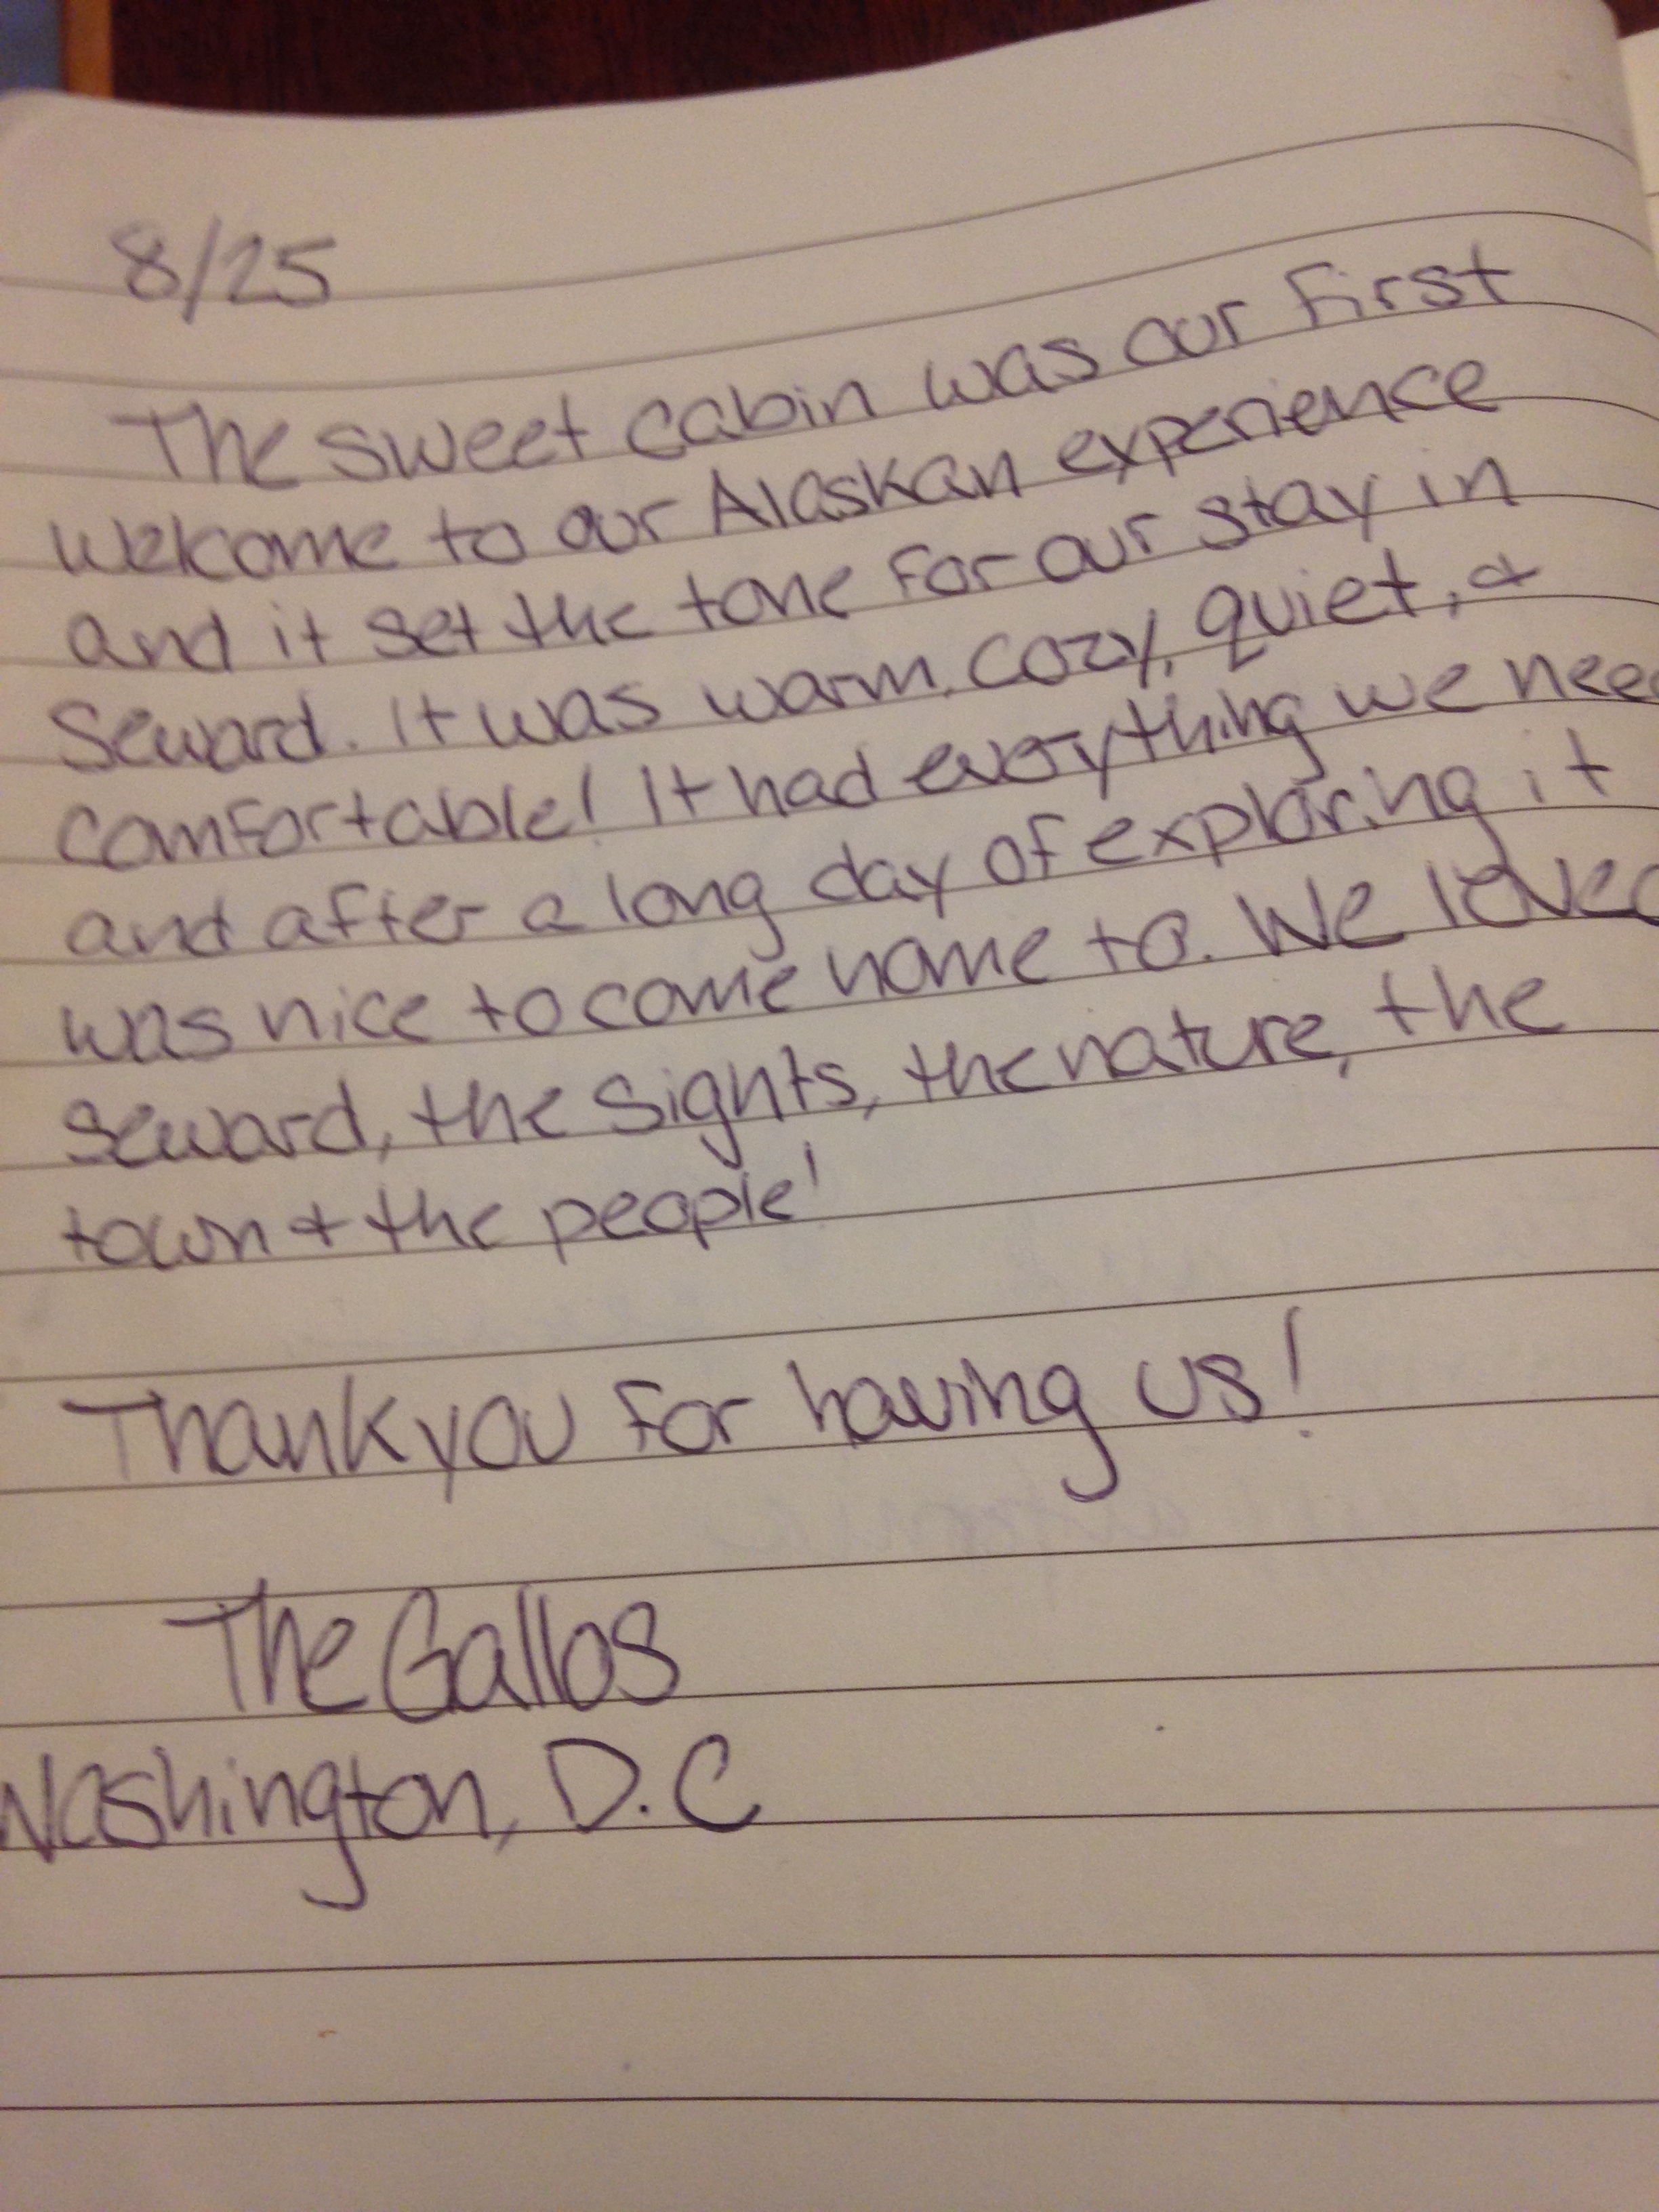 8/25
The sweet cabin was our first
welcome to our Alaskan experience
and it set the tone for our stay in
Seward. It was warm, cozy, quiet, &
comfortable! It had everything we need
and after a long day of exploring it
was nice to come home to. We loved
Seward, the sights, the nature, the
town & the people!
Thank you for having us!
The Gallos
Washington, D.C